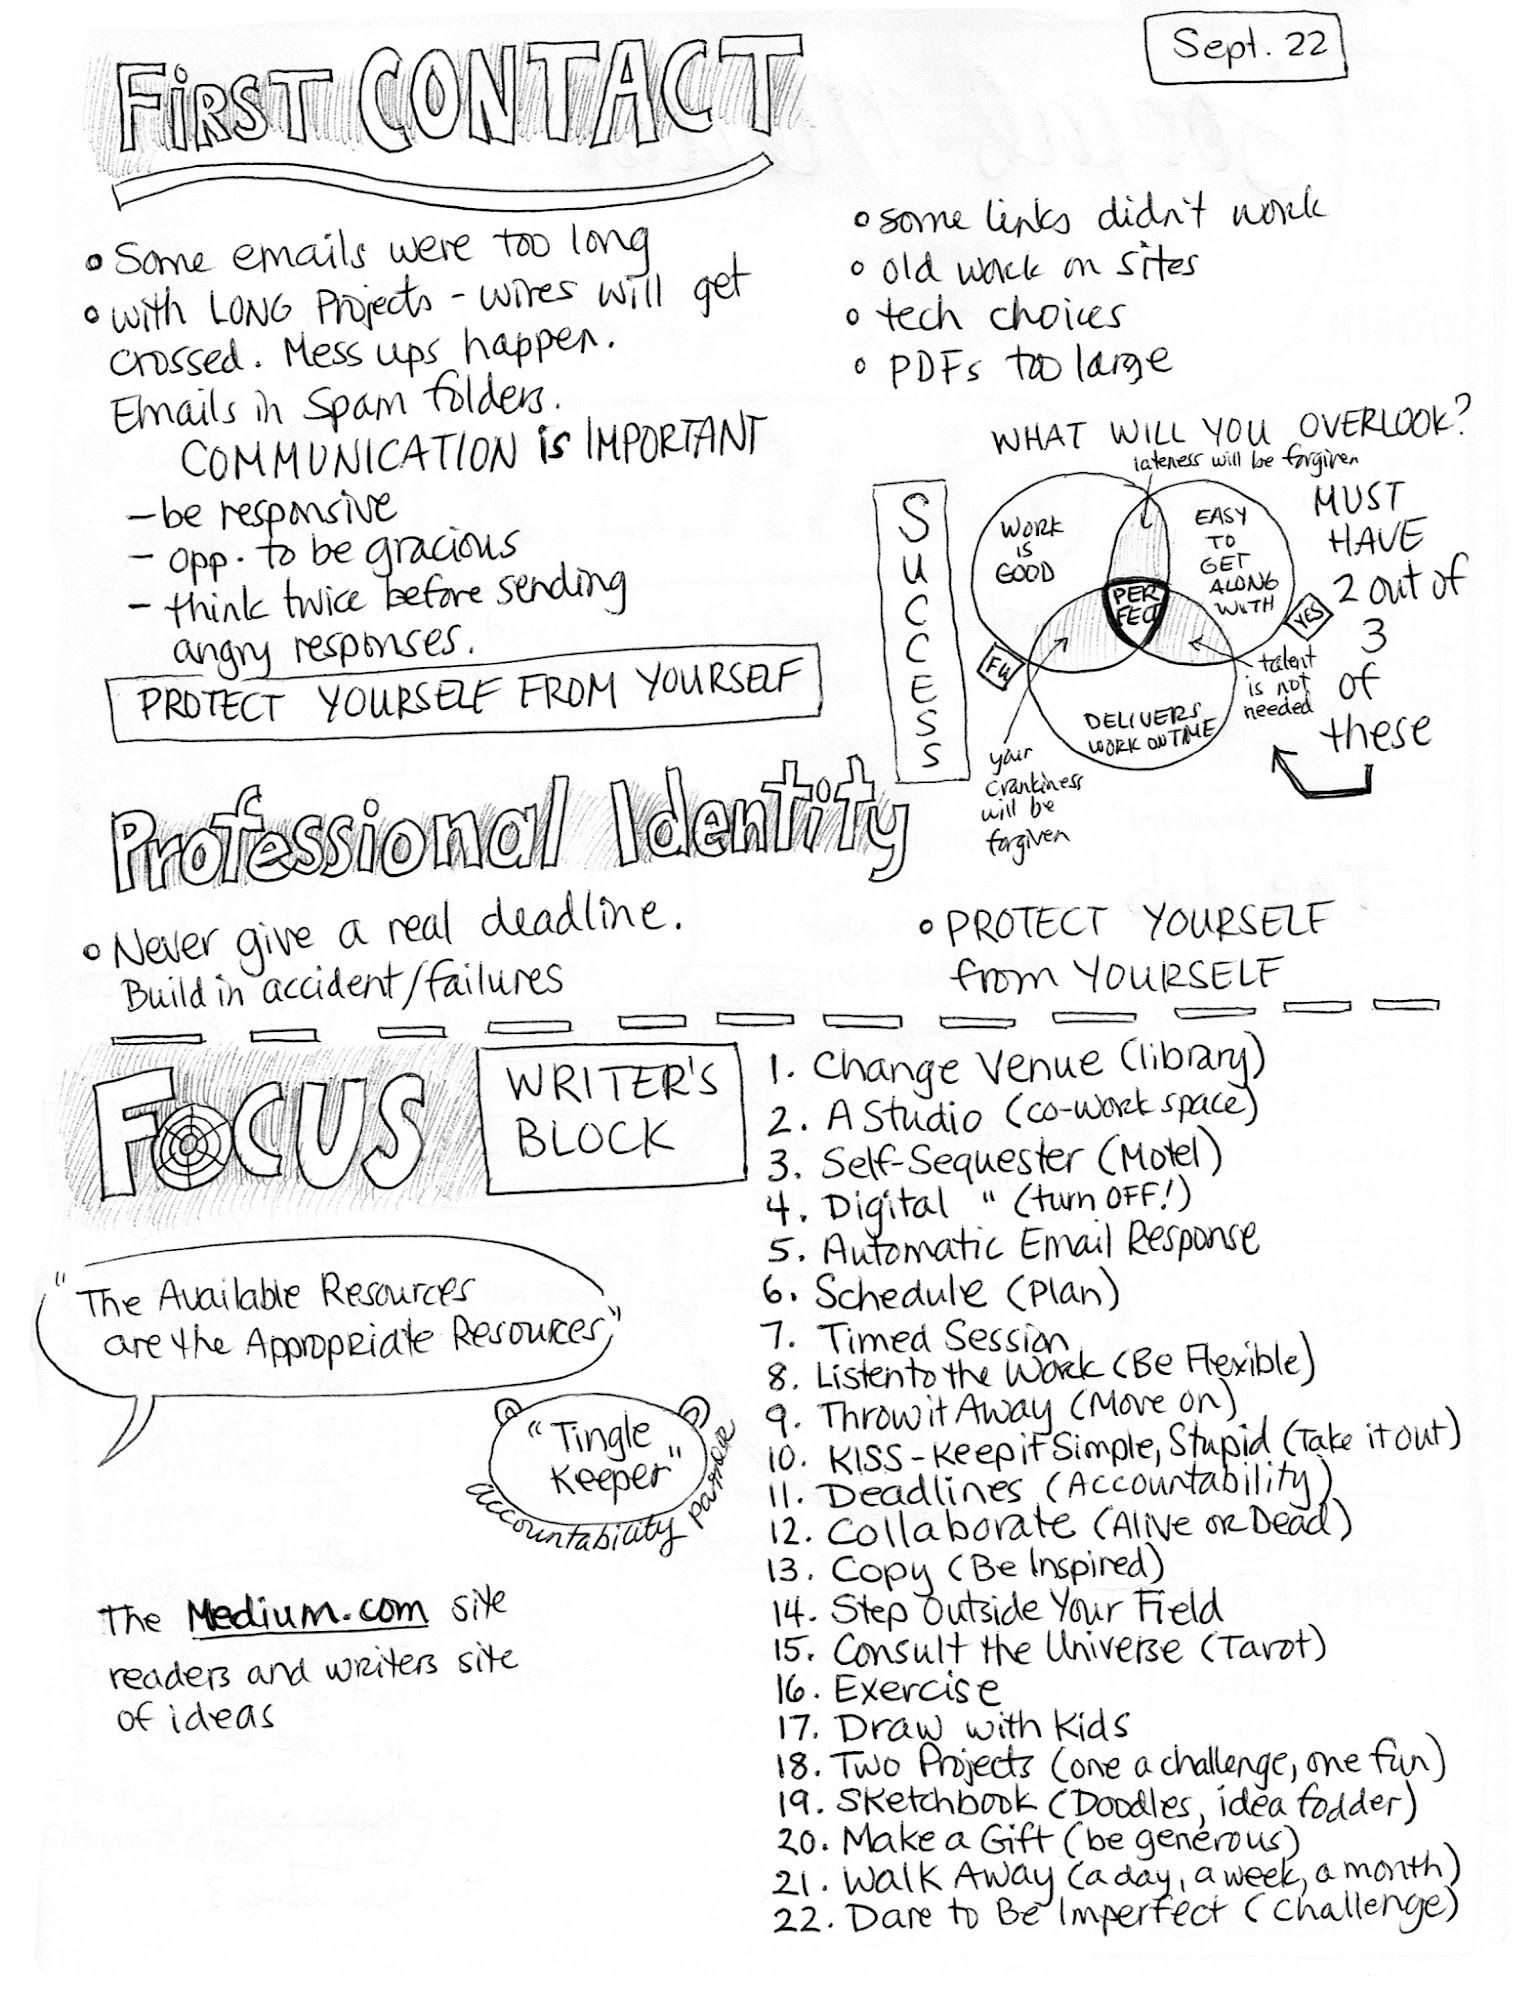 Sept. 22
FiRST CONTACT
• Some emails were too long
• with LONG Projects - wires will get
crossed. Mess ups happen.
Emails in Spam folders.
COMMUNICATION is IMPORTANT
- be responsive
- opp. to be gracious
- think twice before sending
angry responses.
PROTECT YOURSELF FROM YOURSELF
• some links didn't work
• old work on sites
• tech choices
• PDFs too large
WHAT WILL YOU OVERLOOK?
lateness will be forgiven
SUCCESS
WORK
IS
GOOD
EASY
TO
GET
ALONG
WITH
PER
FECT
DELIVERS
WORK ON TIME
YES
your
crankiness
will be
forgiven
talent
is not
needed
MUST
HAVE
2 out of
3
of
these
Professional Identity
• Never give a real deadline.
Build in accident/failures
• PROTECT YOURSELF
from YOURSELF
FOCUS
WRITER'S
BLOCK
"The Available Resources
are the Appropriate Resources"
"Tingle
Keeper"
accountability partner
The Medium.com site
readers and writers site
of ideas
1. Change Venue (library)
2. A Studio (co-work space)
3. Self-Sequester (Motel)
4. Digital " (turn OFF!)
5. Automatic Email Response
6. Schedule (Plan)
7. Timed Session
8. Listen to the Work (Be Flexible)
9. Throw it Away (Move on)
10. KISS - Keep it Simple, Stupid (Take it out)
11. Deadlines (Accountability)
12. Collaborate (Alive or Dead)
13. Copy (Be Inspired)
14. Step Outside Your Field
15. Consult the Universe (Tarot)
16. Exercise
17. Draw with Kids
18. Two Projects (one a challenge, one fun)
19. Sketchbook (Doodles, idea fodder)
20. Make a Gift (be generous)
21. Walk Away (a day, a week, a month)
22. Dare to Be Imperfect (Challenge)